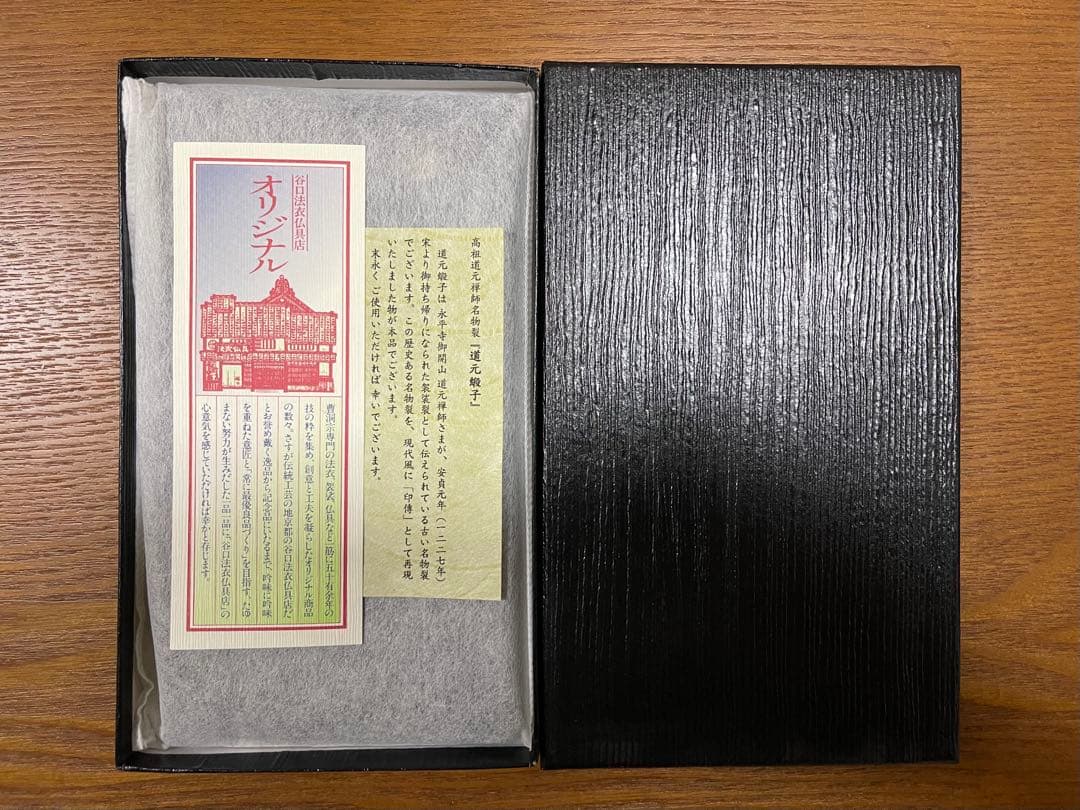 谷口法衣仏具店
オリジナル
曹洞宗専門の法衣、袈裟、仏具など一筋に五十有余年の
技の粋を集め、創意と工夫を凝らしたオリジナル商品
の数々。さすが伝統工芸の地京都の谷口法衣仏具店だ
とお誉め戴く逸品から記念品にいたるまで、吟味に吟味
を重ねた意匠と「常に最優良品づくり」を目指す、たゆ
まない努力が生みだした一品一品に、「谷口法衣仏具店」の
心意気を感じていただければ幸かと存じます。
高祖道元禅師名物裂『道元緞子』
道元緞子は 永平寺御開山 道元禅師さまが、安貞元年(一二二七年)
宋より御持ち帰りになられた袈裟裂として伝えられている古い名物裂
でございます。この歴史ある名物裂を、現代風に「印傳」として再現
いたしました物が本品でございます。
末永く ご使用いただければ 幸いでございます。